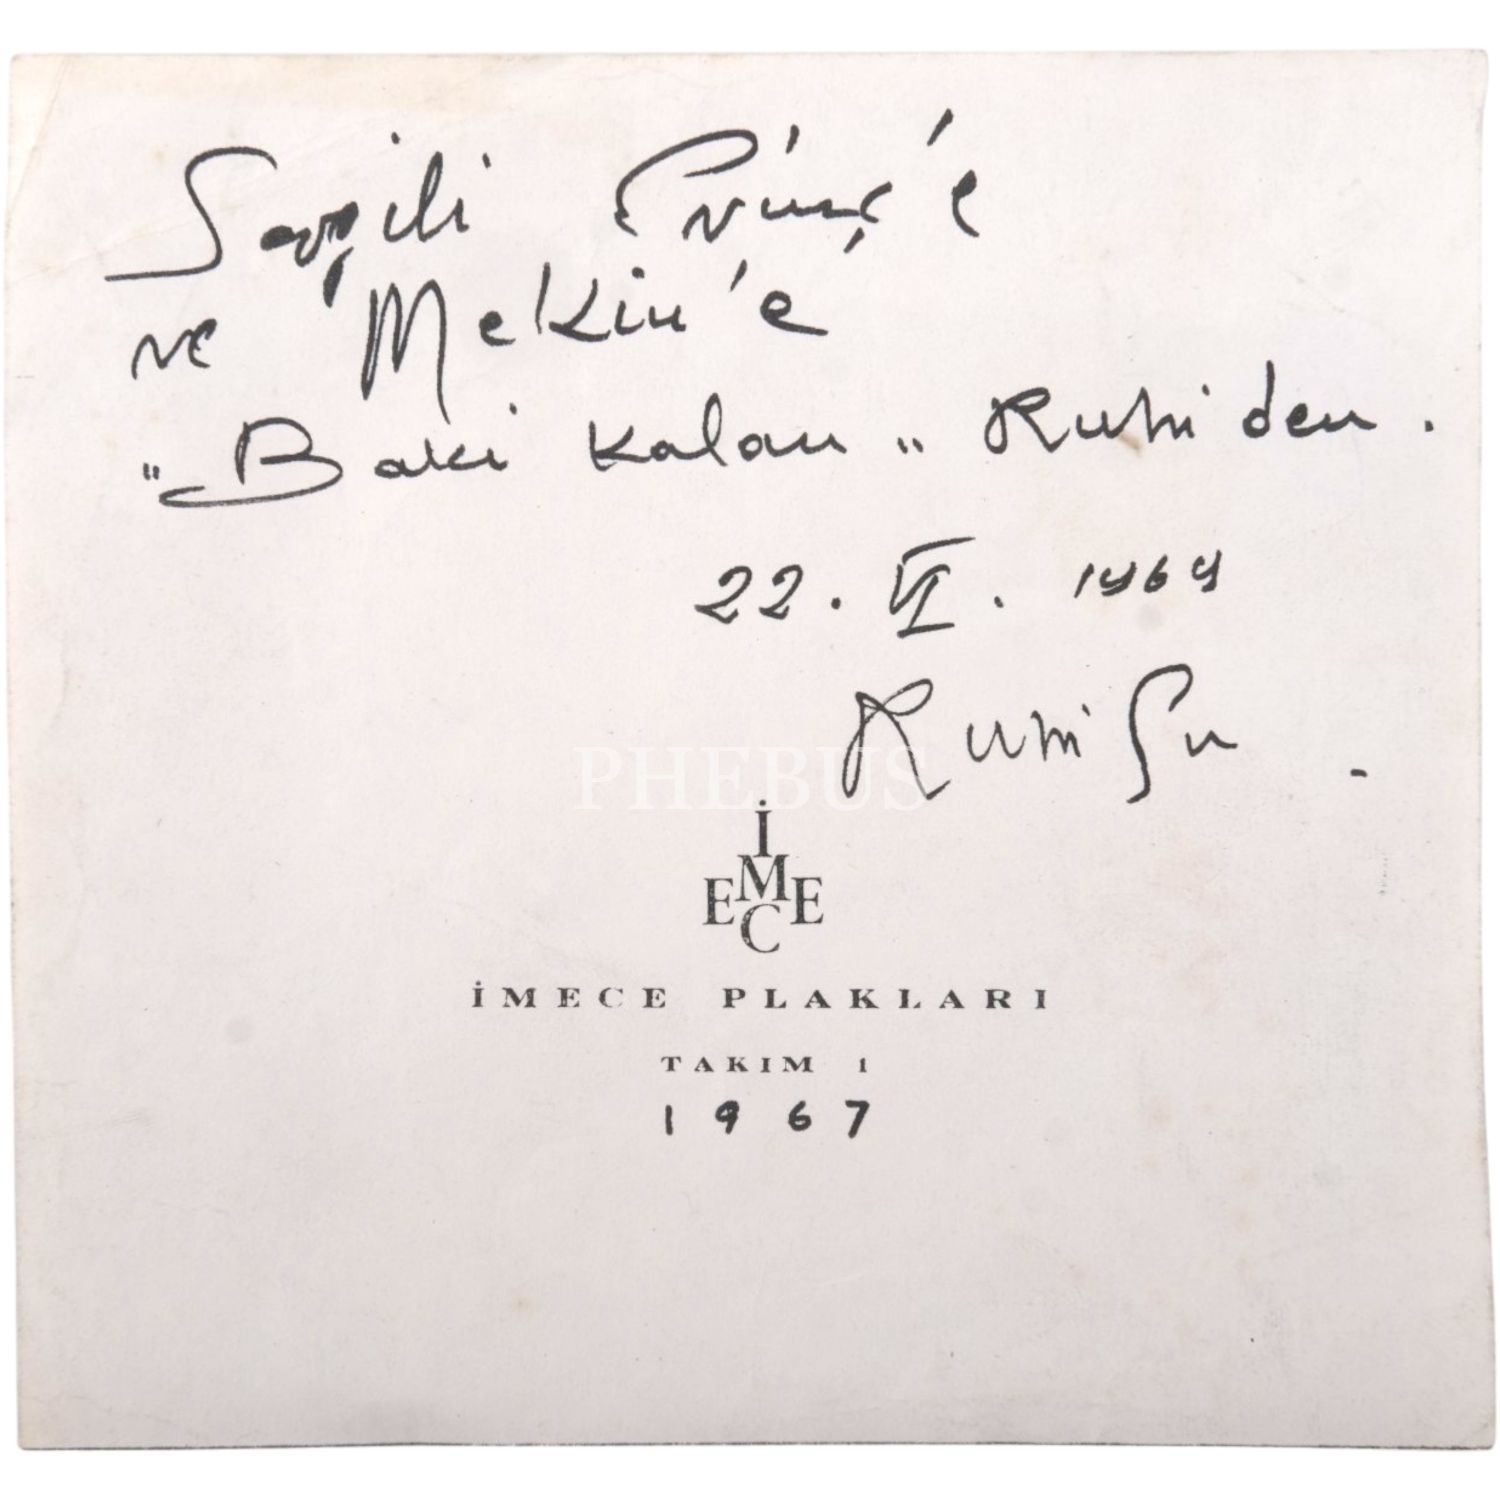 Sevgili Evinç'e
ve Mekin'e
"Baki Kalan" Ruhi den.
22. VI. 1969
Ruhi Su
PHEBUS
İMECE
İMECE PLAKLARI
TAKIM 1
1967